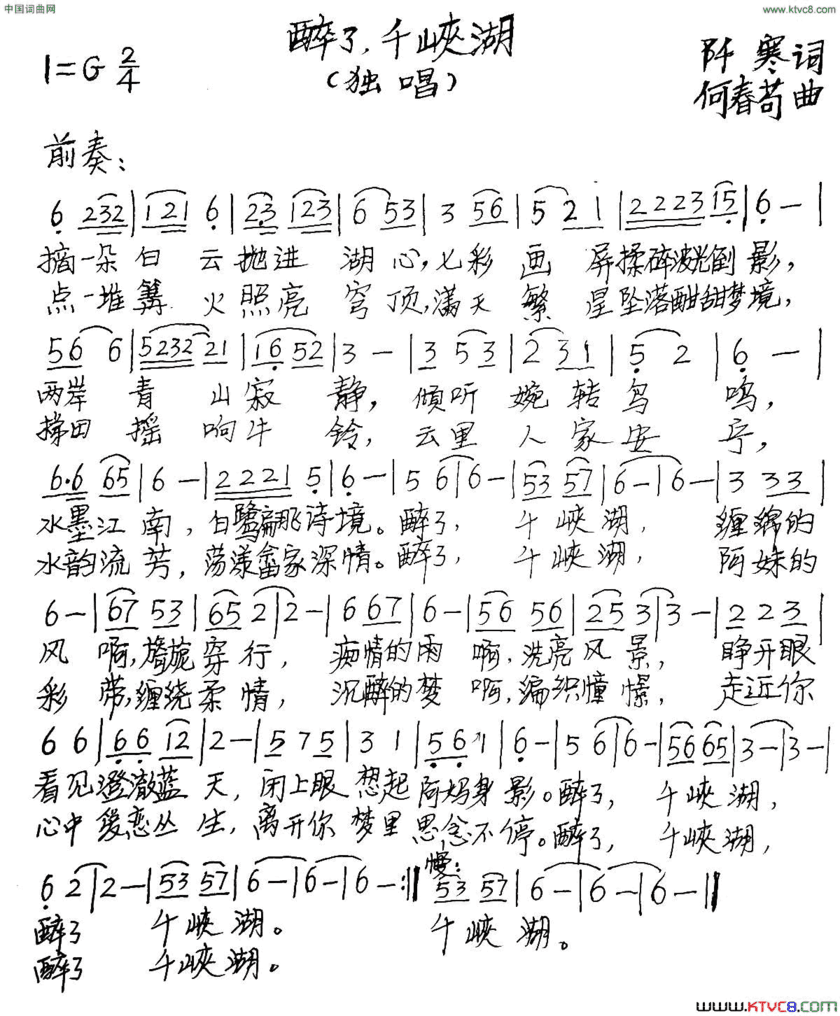 中国词曲网
www.ktvc8.com
醉了,千峡湖
1=G 2/4
(独唱)
阡寒词
何春苟曲
前奏:
6 232|121 6|23 123|6 53|3 56|5 2 1|2223 15|6 —|
摘一朵白云抛进湖心,七彩画屏揉碎波光倒影,
点一堆篝火照亮穹顶,满天繁星坠落酣甜梦境,
56 6|5232 21|16 52|3 —|3 53|2 31|5 2|6 —|
两岸青山寂静,倾听婉转鸟鸣,
梯田摇响牛铃,云里人家安宁,
6·6 65|6 —|2221 5|6 —|5 6|6 —|53 57|6 —|6 —|3 33|
水墨江南,白鹭翩飞诗境。醉了,千峡湖,缠绵的
水韵流芳,荡漾畲家深情。醉了,千峡湖,阿妹的
6 —|67 53|65 2|2 —|6 67|6 —|56 56|25 3|3 —|2 23|
风啊,旖旎穿行,痴情的雨啊,洗亮风景,睁开眼
彩带,缠绕柔情,沉醉的梦啊,编织憧憬,走近你
6 6|66 12|2 —|5 75|3 1|56 1|6 —|5 6|6 —|56 65|3 —|3 —|
看见澄澈蓝天,闭上眼想起阿妈身影。醉了,千峡湖,
心中爱恋丛生,离开你梦里思念不停。醉了,千峡湖,
慢:
6 2|2 —|53 57|6 —|6 —|6 —:‖53 57|6 —|6 —|6 —‖
醉了千峡湖。千峡湖。
醉了千峡湖。
www.KTVC8.com